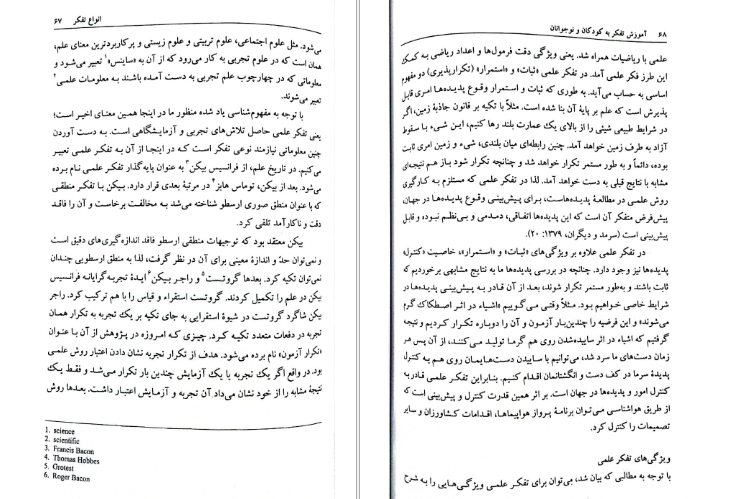 انواع تفکر ۶۷
می‌شود. مثل علوم اجتماعی، علوم تربیتی و علوم زیستی و پرکاربردترین معنای علم،
همان است که در علوم تجربی به کار می‌رود که از آن به «ساینس»۱ تعبیر می‌شود و
معلوماتی که در چهارچوب علم تجربی به دست آمده باشند به معلومات علمی۲
تعبیر می‌شوند.
با توجه به مفهوم‌شناسی یاد شده منظور ما در اینجا همین معنای اخیر است؛
یعنی تفکر علمی حاصل تلاش‌های تجربی و آزمایشگاهی است. به دست آوردن
چنین معلوماتی نیازمند نوعی تفکر است که در اینجا از آن به تفکر علمی تعبیر
می‌کنیم. در تاریخ علم، از فرانسیس بیکن۳ به عنوان پایه‌گذار تفکر علمی نام برده
می‌شود. بعد از بیکن، توماس هابز۴ در مرتبهٔ بعدی قرار دارد. بیکن با تفکر منطقی
که با عنوان منطق صوری ارسطو شناخته می‌شد به مخالفت برخاست و آن را فاقد
دقت و ناکارآمد تلقی کرد.
بیکن معتقد بود که توجیهات منطقی ارسطو فاقد اندازه‌گیری‌های دقیق است
و نمی‌توان حد و اندازهٔ معینی برای آن در نظر گرفت، لذا به منطق ارسطویی چندان
نمی‌توان تکیه کرد. بعدها گروتست۵ و راجر بیکن۶ ایدهٔ تجربه‌گرایانه فرانسیس
بیکن در علم را تکمیل کردند. گروتست استقراء و قیاس را با هم ترکیب کرد. راجر
بیکن شاگرد گروتست در شیوهٔ استقرایی به جای تکیه بر یک تجربه به تکرار همان
تجربه در دفعات متعدد تکیه کرد. چیزی که امروزه در پژوهش از آن با عنوان
«تکرار آزمون» نام برده می‌شود. هدف از تکرار تجربه نشان دادن اعتبار روش علمی
بود. در واقع اگر یک تجربه با یک آزمایش چندین بار تکرار می‌شد و فقط یک
نتیجهٔ مشابه را از خود نشان می‌داد، آن تجربه و آزمایش اعتبار داشت. بعدها روش
1. science
2. scientific
3. Francis Bacon
4. Thomas Hobbes
5. Grotest
6. Roger Bacon
۶۸ آموزش تفکر به کودکان و نوجوانان
علمی با ریاضیات همراه شد. یعنی ویژگی دقت فرمول‌ها و اعداد ریاضی به کمک
این طرز فکر علمی آمد. در تفکر علمی «ثبات» و «استمرار» (تکرارپذیری) دو مفهوم
اساسی به حساب می‌آید. به طوری که ثبات و استمرار وقوع پدیده‌ها امری قابل
پذیرش است که علم بر پایهٔ آن بنا شده است. مثلاً با تکیه بر قانون جاذبهٔ زمین، اگر
در شرایط طبیعی شیئی را از بالای یک عمارت بلند رها کنیم، این شیء با سقوط
آزاد به طرف زمین خواهد آمد. چنین رابطه‌ای میان بلندی، شیء و زمین امری ثابت
بوده، دائماً و به طور مستمر تکرار خواهد شد و چنانچه تکرار شود باز هم نتیجه‌ای
مشابه با نتایج قبلی به دست خواهد آمد. لذا در تفکر علمی که مستلزم به کارگیری
روش علمی در مطالعهٔ پدیده‌هاست، برای پیش‌بینی وقوع پدیده‌ها در جهان
پیش‌فرض متفکر آن است که این پدیده‌ها اتفاقی، دمدمی و بی‌نظم نبوده و قابل
پیش‌بینی است (سرمد و دیگران، ۱۳۷۹: ۲۰).
در تفکر علمی علاوه بر ویژگی‌های «ثبات» و «استمرار»، خاصیت «کنترل»
پدیده‌ها نیز وجود دارد. چنانچه در بررسی پدیده‌ها ما به نتایج مشابهی برخوردیم که
ثابت باشند و به‌طور مستمر تکرار شوند؛ بعد از آن قادر به پیش‌بینی پدیده‌ها در
شرایط خاصی خواهیم بود. مثلاً وقتی می‌گوییم «اشیاء در اثر اصطکاک گرم
می‌شوند» و این فرضیه را چندین‌بار آزمون و آن را دوباره تکرار کردیم و نتیجه
گرفتیم که اشیاء در اثر ساییده‌شدن روی هم گرما تولید می‌کنند، از آن پس هر
زمان دست‌های ما سرد شد، می‌توانیم با ساییدن دست‌هایمان روی هم به کنترل
پدیدهٔ سرما در کف دست و انگشتانمان اقدام کنیم. بنابراین تفکر علمی قادر به
کنترل امور و پدیده‌ها در جهان است. بر اثر همین قدرت کنترل و پیش‌بینی است که
از طریق هواشناسی می‌توان برنامهٔ پرواز هواپیماها، اقدامات کشاورزان و سایر
تصمیمات را کنترل کرد.
ویژگی‌های تفکر علمی
با توجه به مطالبی که بیان شد، می‌توان برای تفکر علمی ویژگی‌هایی را به شرح